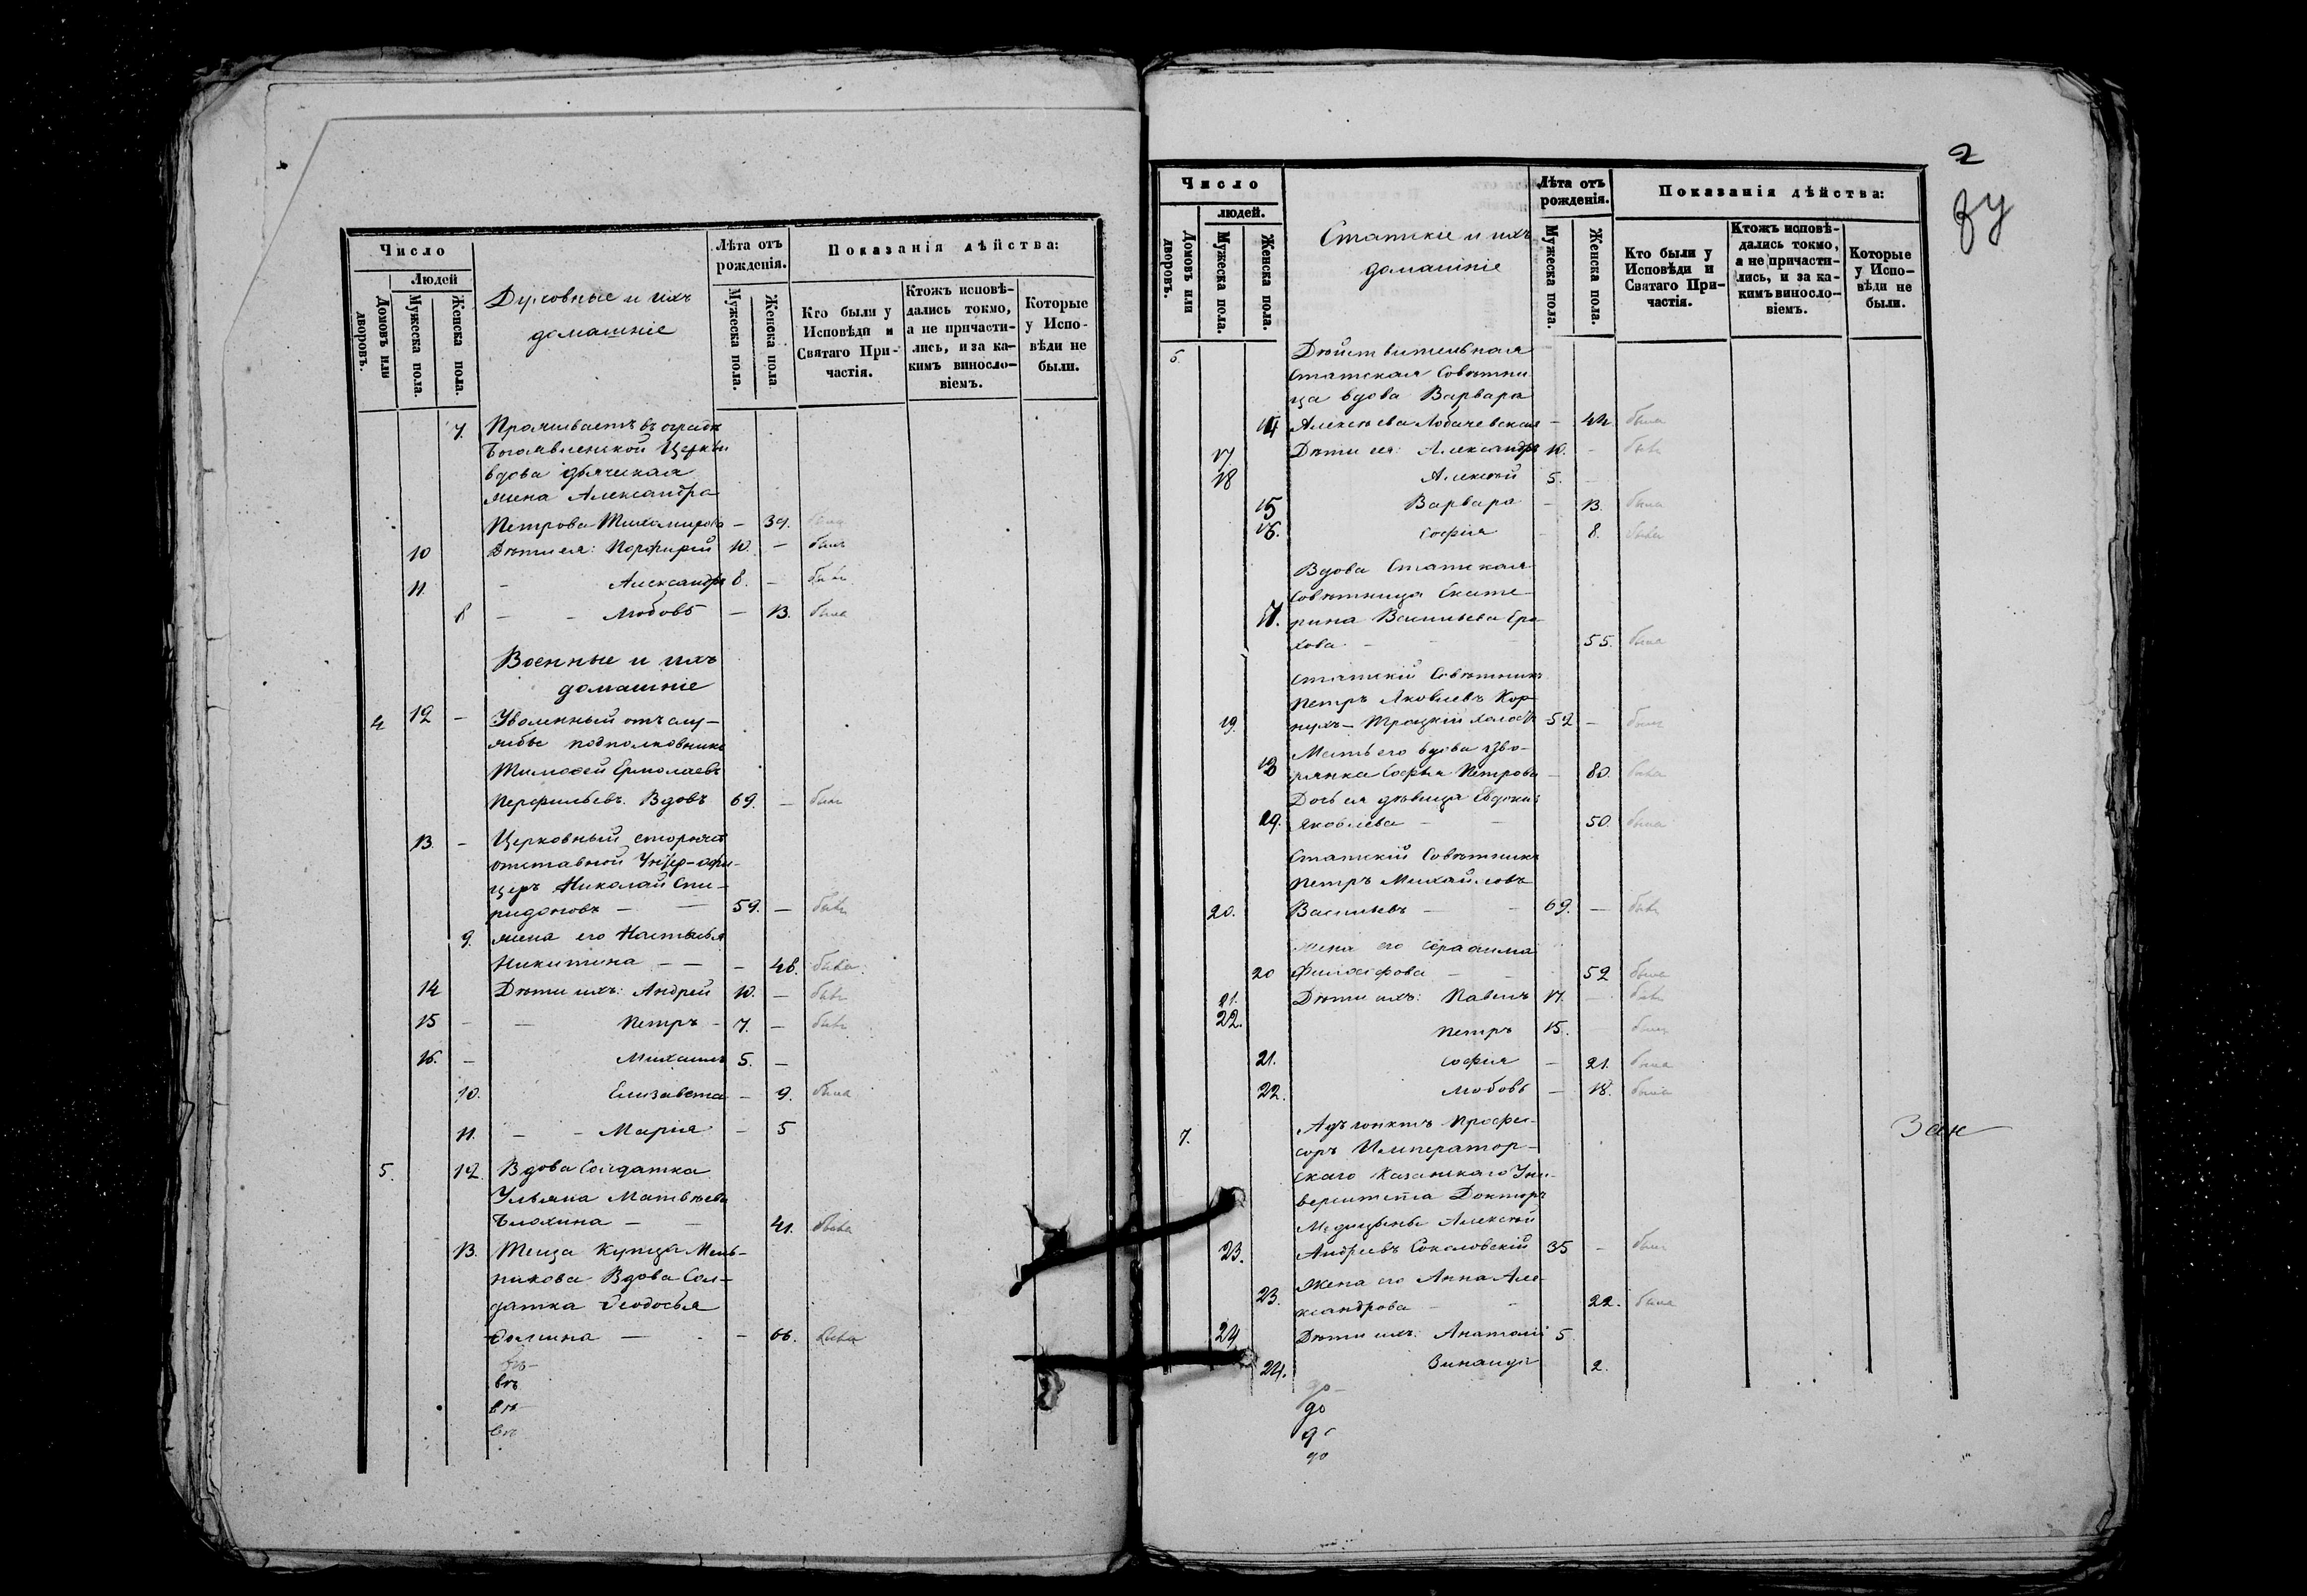 Число
Людей
Домовъ или дворовъ.
Мужеска пола.
Женска пола.
Духовные и ихъ
домашніе
Лѣта отъ
рожденія.
Мужеска пола.
Женска пола
Показанія дѣйства:
Кто были у
Исповѣди и
Святаго При-
частія.
Ктожъ исповѣ-
дались токмо,
а не причасти-
лись, и за ка-
кимъ виносло-
віемъ.
Которые
у Испо-
вѣди не
были.
7. Проживаетъ въ оградѣ
Богоявленской Церкви
вдова дьяческая
жена Александра
Петрова Тихомирова — 39. была
10 Дѣти ея: Порфирій 10. — былъ
11. — Александръ 8. — былъ
8 — - Любовь — 13. была
Военные и ихъ
домашніе
4 12 — Уволенный отъ слу-
жбы подполковникъ
Тимофей Ермолаевъ
Перфильевъ. Вдовъ 69. — былъ
13. — Церковный сторожъ
отставной Унтер-офи-
церъ Николай Спи-
ридоновъ — — 59. — былъ
9. жена его Настасья
Никитина — — — 46. была
14 Дѣти ихъ: Андрей 10. — былъ
15 — — Петръ — 7. — былъ
16. — Михаилъ 5. —
10. Елизавета — 9. была
11. — - Марія — 5
5. 12. Вдова Солдатка
Ульяна Матвѣева
Блохина — — 41. была
13. Теща Купца Мель-
никова Вдова Сол-
датка Ѳеодосья
— - — 66. была
въ
въ
въ
2
Число
людей.
Домовъ или дворовъ.
Мужеска пола.
Женска пола.
Статскіе и ихъ
домашніе
Лѣта отъ
рожденія.
Мужеска пола.
Женска пола.
Показанія дѣйства:
Кто были у
Исповѣди и
Святаго При-
частія.
Ктожъ исповѣ-
дались токмо,
а не причасти-
лись, и за ка-
кимъ виносло-
віемъ.
Которые
у Испо-
вѣди не
были.
6. Дѣйствительная
Статская Совѣтни-
ца вдова Варвара
14 Алексѣева Лобачевская — 44. была
17. Дѣти ея: Александръ 10. - былъ
18 Алексѣй 5. -
15 Варвара — 13. была
16. Софія - 8. была
Вдова Статская
Совѣтница Екате-
17. рина Васильева Ера-
хова — - - 55. была
Статскій Совѣтникъ
Петръ Яковлевъ Кор-
19. нухъ-Троцкій холостъ 52 — былъ
Мать его вдова дво-
18 рянка Софья Петрова — 80. была
Дочь ея дѣвица Евдокія
19. Яковлева — - 50. была
Статскій Совѣтникъ
Петръ Михайловъ
20. Васильевъ — - 69. — былъ
жена его Серафима
20 Философова — - 52 была
21. Дѣти ихъ: Павелъ 17. - былъ
22. Петръ 15. былъ
21. Софія — 21. была
22. Любовь — 18. была
7. Адъюнктъ Професи-
соръ Император-
скаго Казанскаго Уни-
верситета Докторъ
Медицины Алексѣй
23. Андреевъ Соколовскій 35 - былъ
Жена его Анна Але-
23. ксандрова — - 22. была
24 Дѣти ихъ: Анатолій 5
24. Зинаида 2.
до
до
до